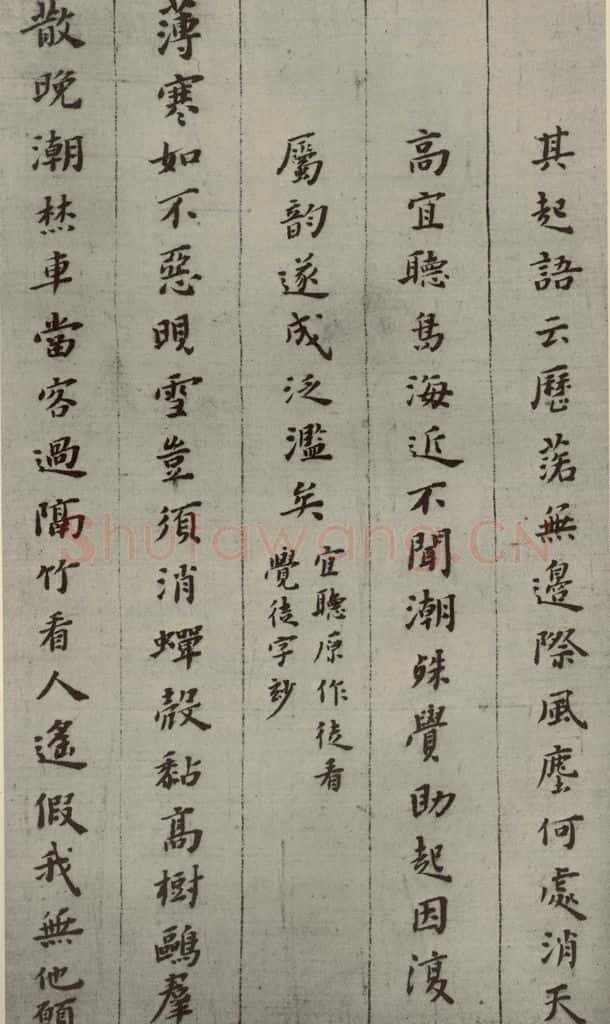 其起語云歷落無邊際風塵何處消天
高宜聽雋海近不聞潮殊覺助起因復
屬韵遂成泛濫矣
宜聽原作徒看
覺徒字玅
薄寒如不惡晛雪豈須消蟬殼黏高樹鷗羣
散晚潮焚車當客過隔竹看人遙假我無他願
Shufawang.CN